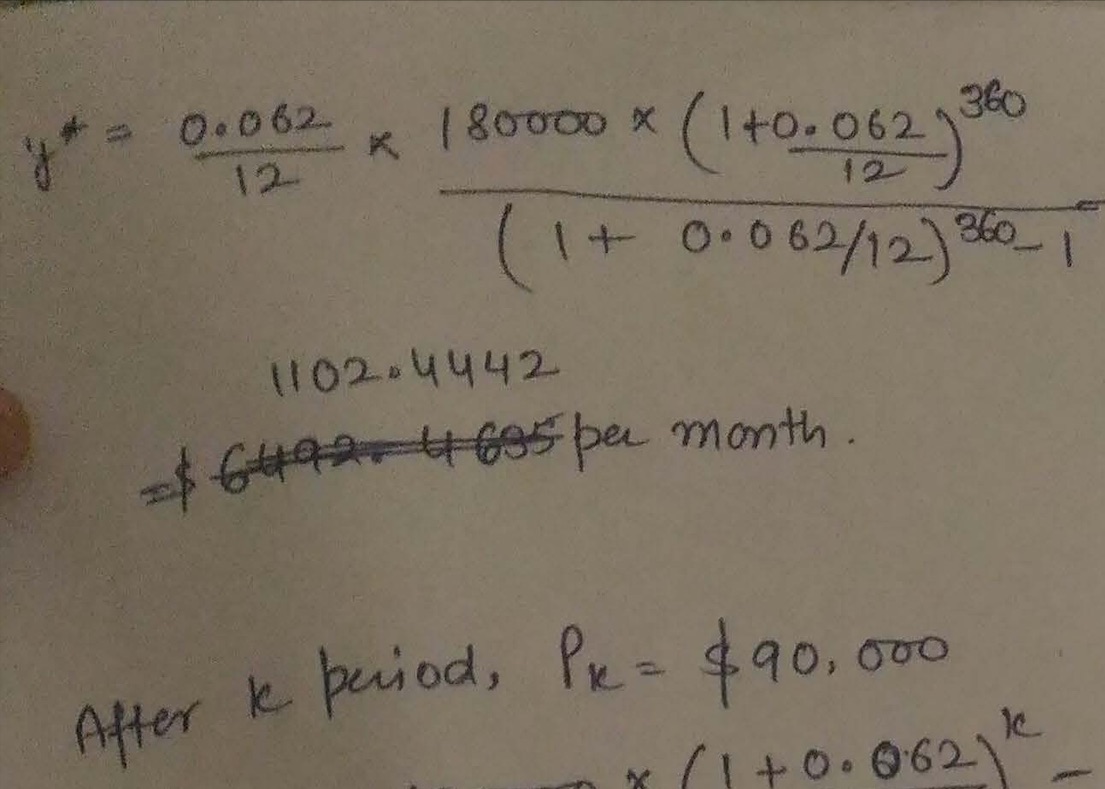 y* = 0.062/12 × 180000 × (1+0.062/12)^360 / (1 + 0.062/12)^360 - 1
1102.4442
=$ 6492.4635 per month.
After k period, Pk = $90,000
× (1+0.062)^k -